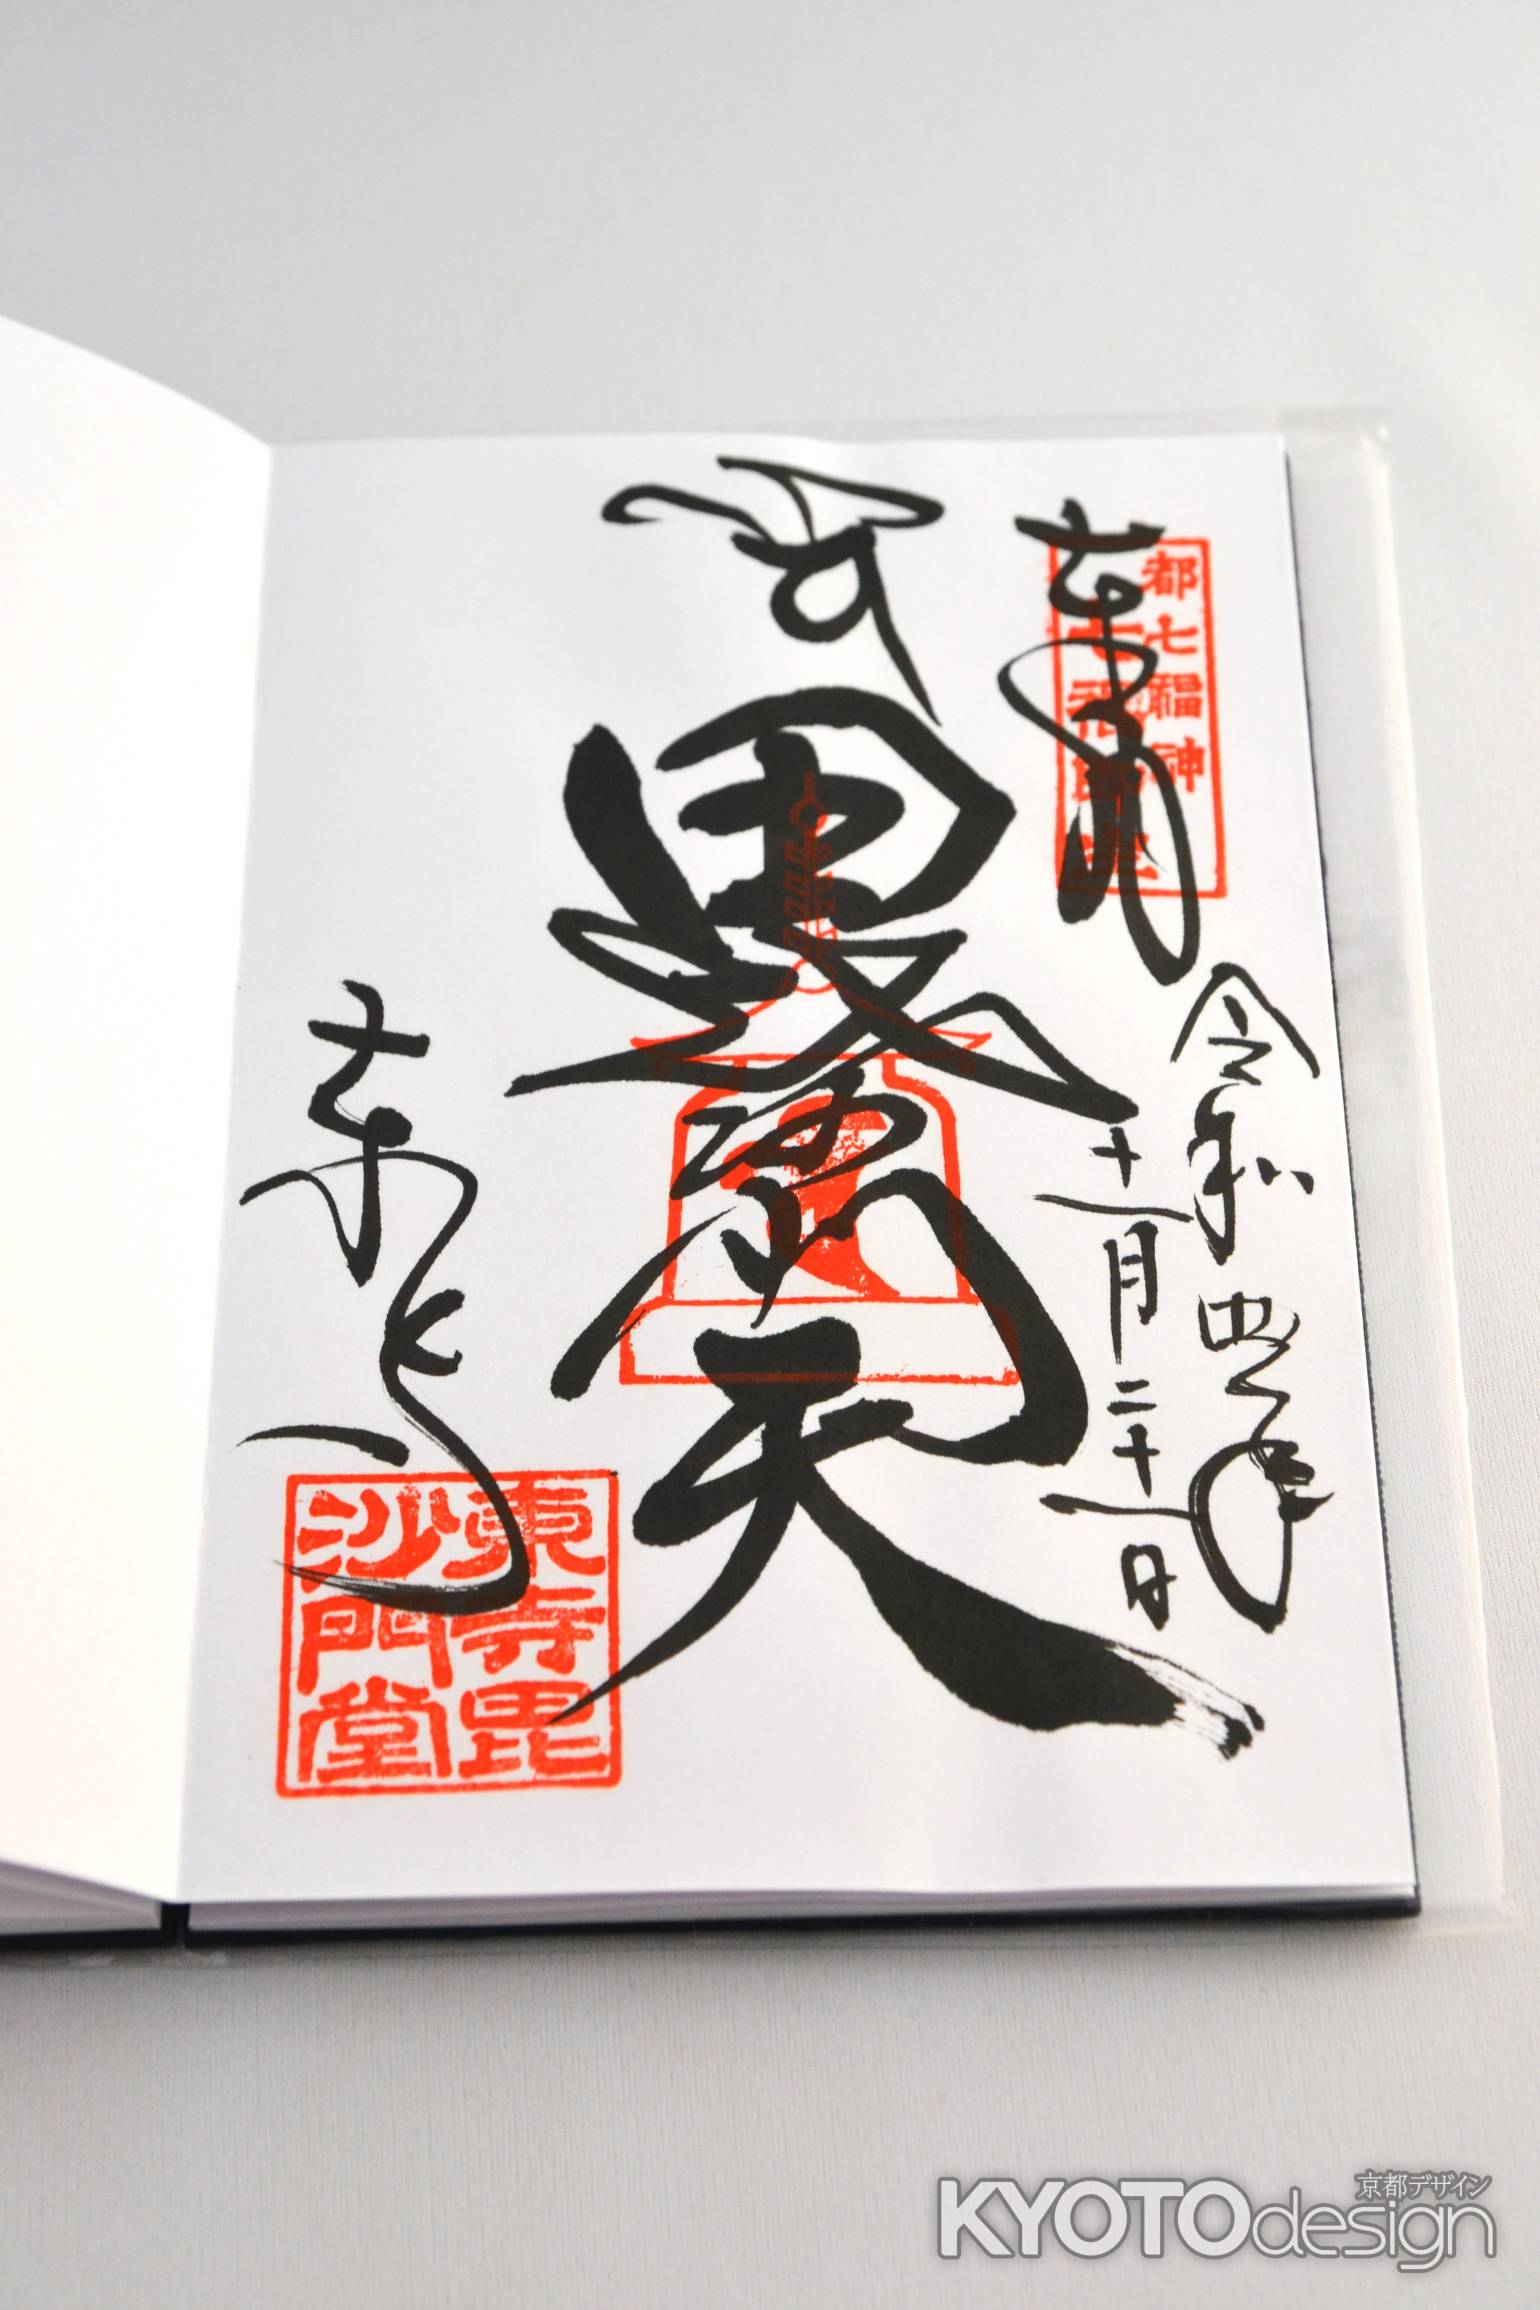 奉拝
都七福神
七福即生
令和四年
十一月二十一日
毘沙門天
東寺
東寺毘
沙門堂
京都デザイン
KYOTOdesign